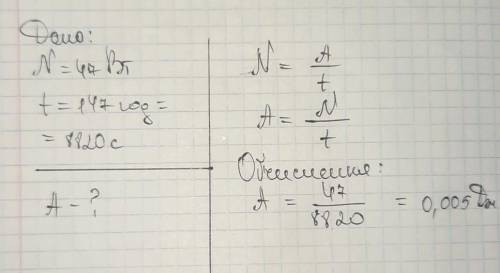 Дано:
N = 47 Вт
t = 147 год =
= 8820 с
A - ?
N = A / t
A = N / t
Обчислення:
A = 47 / 8820 = 0,005 Дж